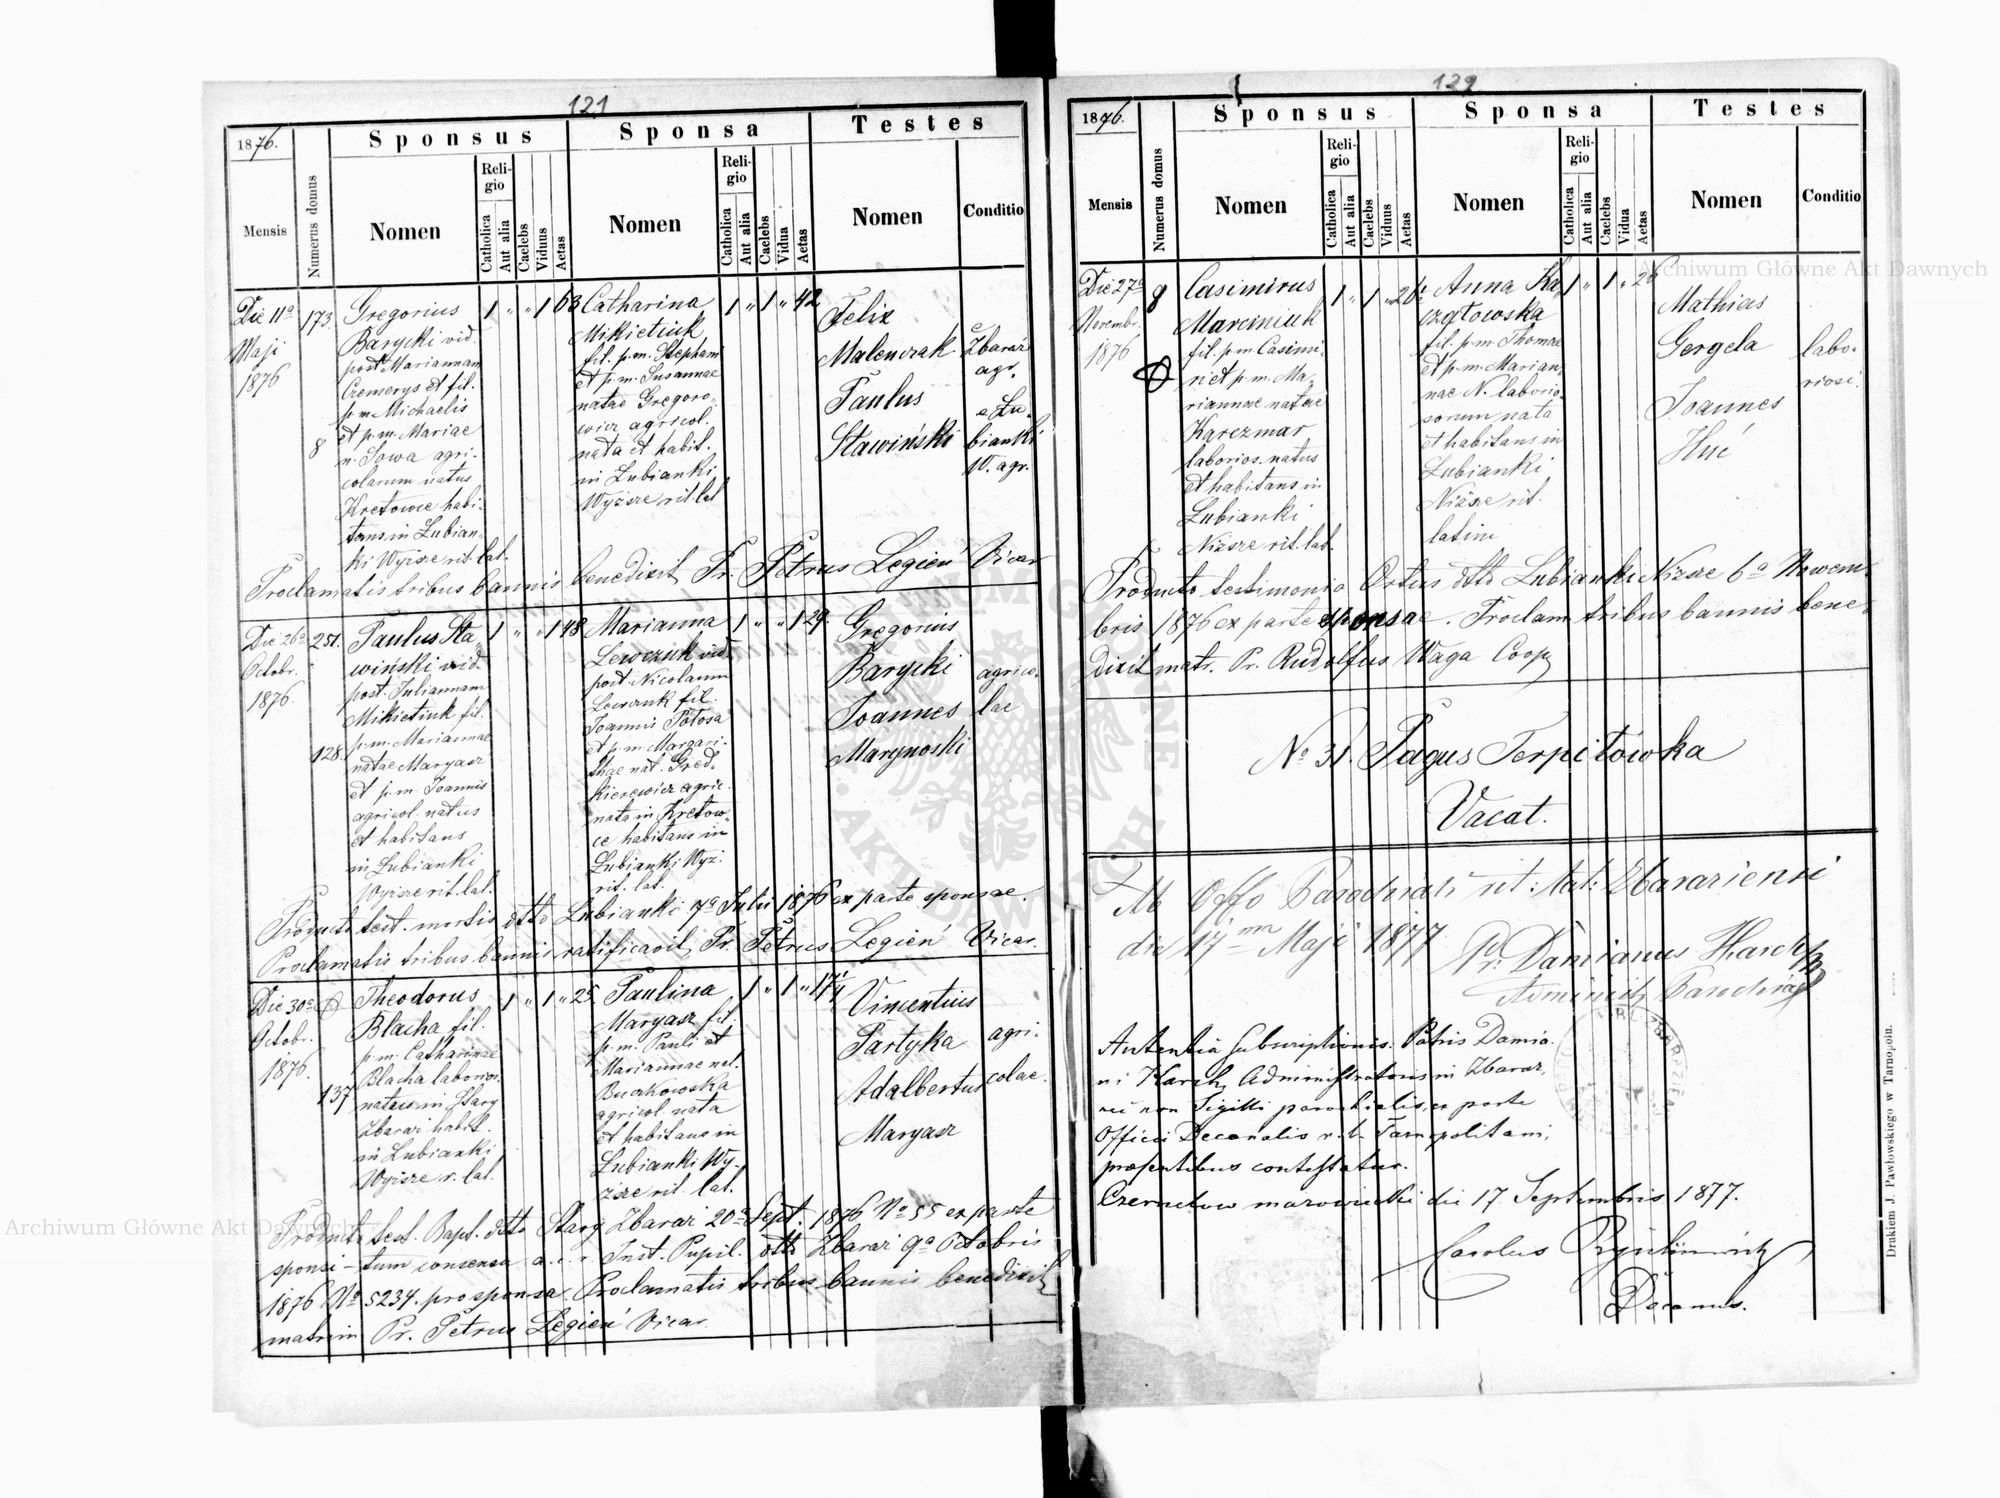 121
1876.
Mensis
Numerus domus
Sponsus
Nomen
Religio
Catholica
Aut alia
Caelebs
Viduus
Aetas
Sponsa
Nomen
Religio
Catholica
Aut alia
Caelebs
Vidua
Aetas
Testes
Nomen
Conditio
Die 11a
Maji
1876
173.
8
Gregorius
Barycki vid.
post Mariannam
Cremerys et fil.
p.m. Michaelis
et p.m. Mariae
n. Sowa agri-
colarum natus
Kretowce habi-
tans in Lubian-
ki Wyższe rit. lat.
1 " " 1 63
Catharina
Mikietiuk
fil. p.m. Stephani
et p.m. Susannae
natae Gregoro-
wicz agricol.
nata et habit.
in Lubianki
Wyższe rit. lat
1 " 1 " 42
Felix
Malenczak
Paulus
Stawiński
Zbaraż
agr.
e Lu-
bianki
W. agr.
Proclamatis tribus bannis benedixit Pr. Petrus Legień Vicar
Die 26a
Octobr.
1876.
251.
128.
Paulus Sta-
wiński vid.
post. Juliannam
Mikietiuk fil.
p.m. Mariannae
natae Maryasz
et p.m. Joannis
agricol. natus
et habitans
in Lubianki
Wyższe rit. lat.
1 " " 1 48
Marianna
Lewczuk vid.
post Nicolaum
Lewczuk fil.
Joannis Potosa
et p.m. Margari-
thae nat. Gred-
kierewicz agric.
nata in Kretow-
ce habitans in
Lubianki Wyż.
rit. lat.
1 " " 1 29.
Gregorius
Barycki
Joannes
Marynoski
agrico-
lae
Producto test. mortis dtto Lubianki 7a Julii 1876 ex parte sponsae.
Proclamatis tribus bannis ratificavit Pr. Petrus Legień Vicar.
Die 30a
Octobr.
1876.
137
Theodorus
Blacha fil.
p.m. Catharinae
Blacha laborios.
natus in Stary
Zbaraż habit.
in Lubianki
Wyższe r. lat.
1 " 1 " 25.
Paulina
Maryasz fil.
p.m. Pauli et
Mariannae nat.
Buczkowska
agricol. nata
et habitans in
Lubianki Wy-
ższe rit. lat.
1 " 1 "
Vincentius
Partyka
Adalbertus
Maryasz
agri-
colae.
Producto test. Bapt. dtto Stary Zbaraż 20a Sept. 1876 No 55 ex parte
sponsi - tum consensu a. c. r. Inst. Pupil. dtto Zbaraż 9a Octobris
1876 No 5234. pro sponsa. Proclamatis tribus bannis benedixit
matrim Pr. Petrus Legień Vicar.
129
1876.
Mensis
Numerus domus
Sponsus
Nomen
Religio
Catholica
Aut alia
Caelebs
Viduus
Aetas
Sponsa
Nomen
Religio
Catholica
Aut alia
Caelebs
Vidua
Aetas
Testes
Nomen
Conditio
Die 27a
Novembr.
1876
8
Casimirus
Marciniuk
fil. p.m. Casimi-
ri et p.m. Ma-
riannae natae
Karczmar
laborios. natus
et habitans in
Lubianki
Niższe rit. lat.
1 " 1 " 26
Anna Ka-
czątowska
fil. p.m. Thomae
et p.m. Marian-
nae N. laborio-
sorum nata
et habitans in
Lubianki
Niższe rit.
latini
1 " 1 " 26
Mathias
Gergela
Joannes
Huć
labo-
riosi.
Producto testimonio Ortus dtto Lubianki Niższe 6a Novem-
bris 1876 ex parte sponsae. Proclam. tribus bannis bene-
dixit matr. Pr. Rudolfus Waga Coop
No 31. Pagus Terpitówka
Vacat.
Ab Offo Parochiali rit: lat: Zbarariensi
die 17ma Maji 1877
Pr. Damianus Harch
Administ Parochiae
Autentia Subscriptionis: Patris Damia-
ni Harch, Administratoris in Zbaraż,
nec non Sigilli parochialis, ex parte
Officii Decanalis r. l. Tarnopolitani,
præsentibus contestatur.
Czernelow mazowiecki die 17 Septembris 1877.
Carolus
Decanus.
Drukiem J. Pawłowskiego w Tarnopolu.
Archiwum Główne Akt Dawnych
Archiwum Główne Akt Dawnych